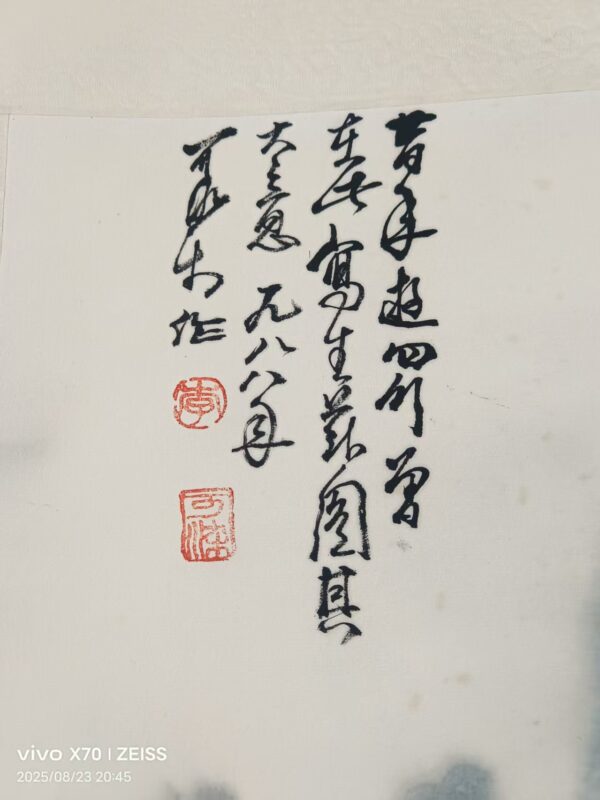 昔年遊四川曾
在此寫生兹圖其
大意 一九八八年
可染作
李
可染
vivo X70 | ZEISS
2025/08/23 20:45